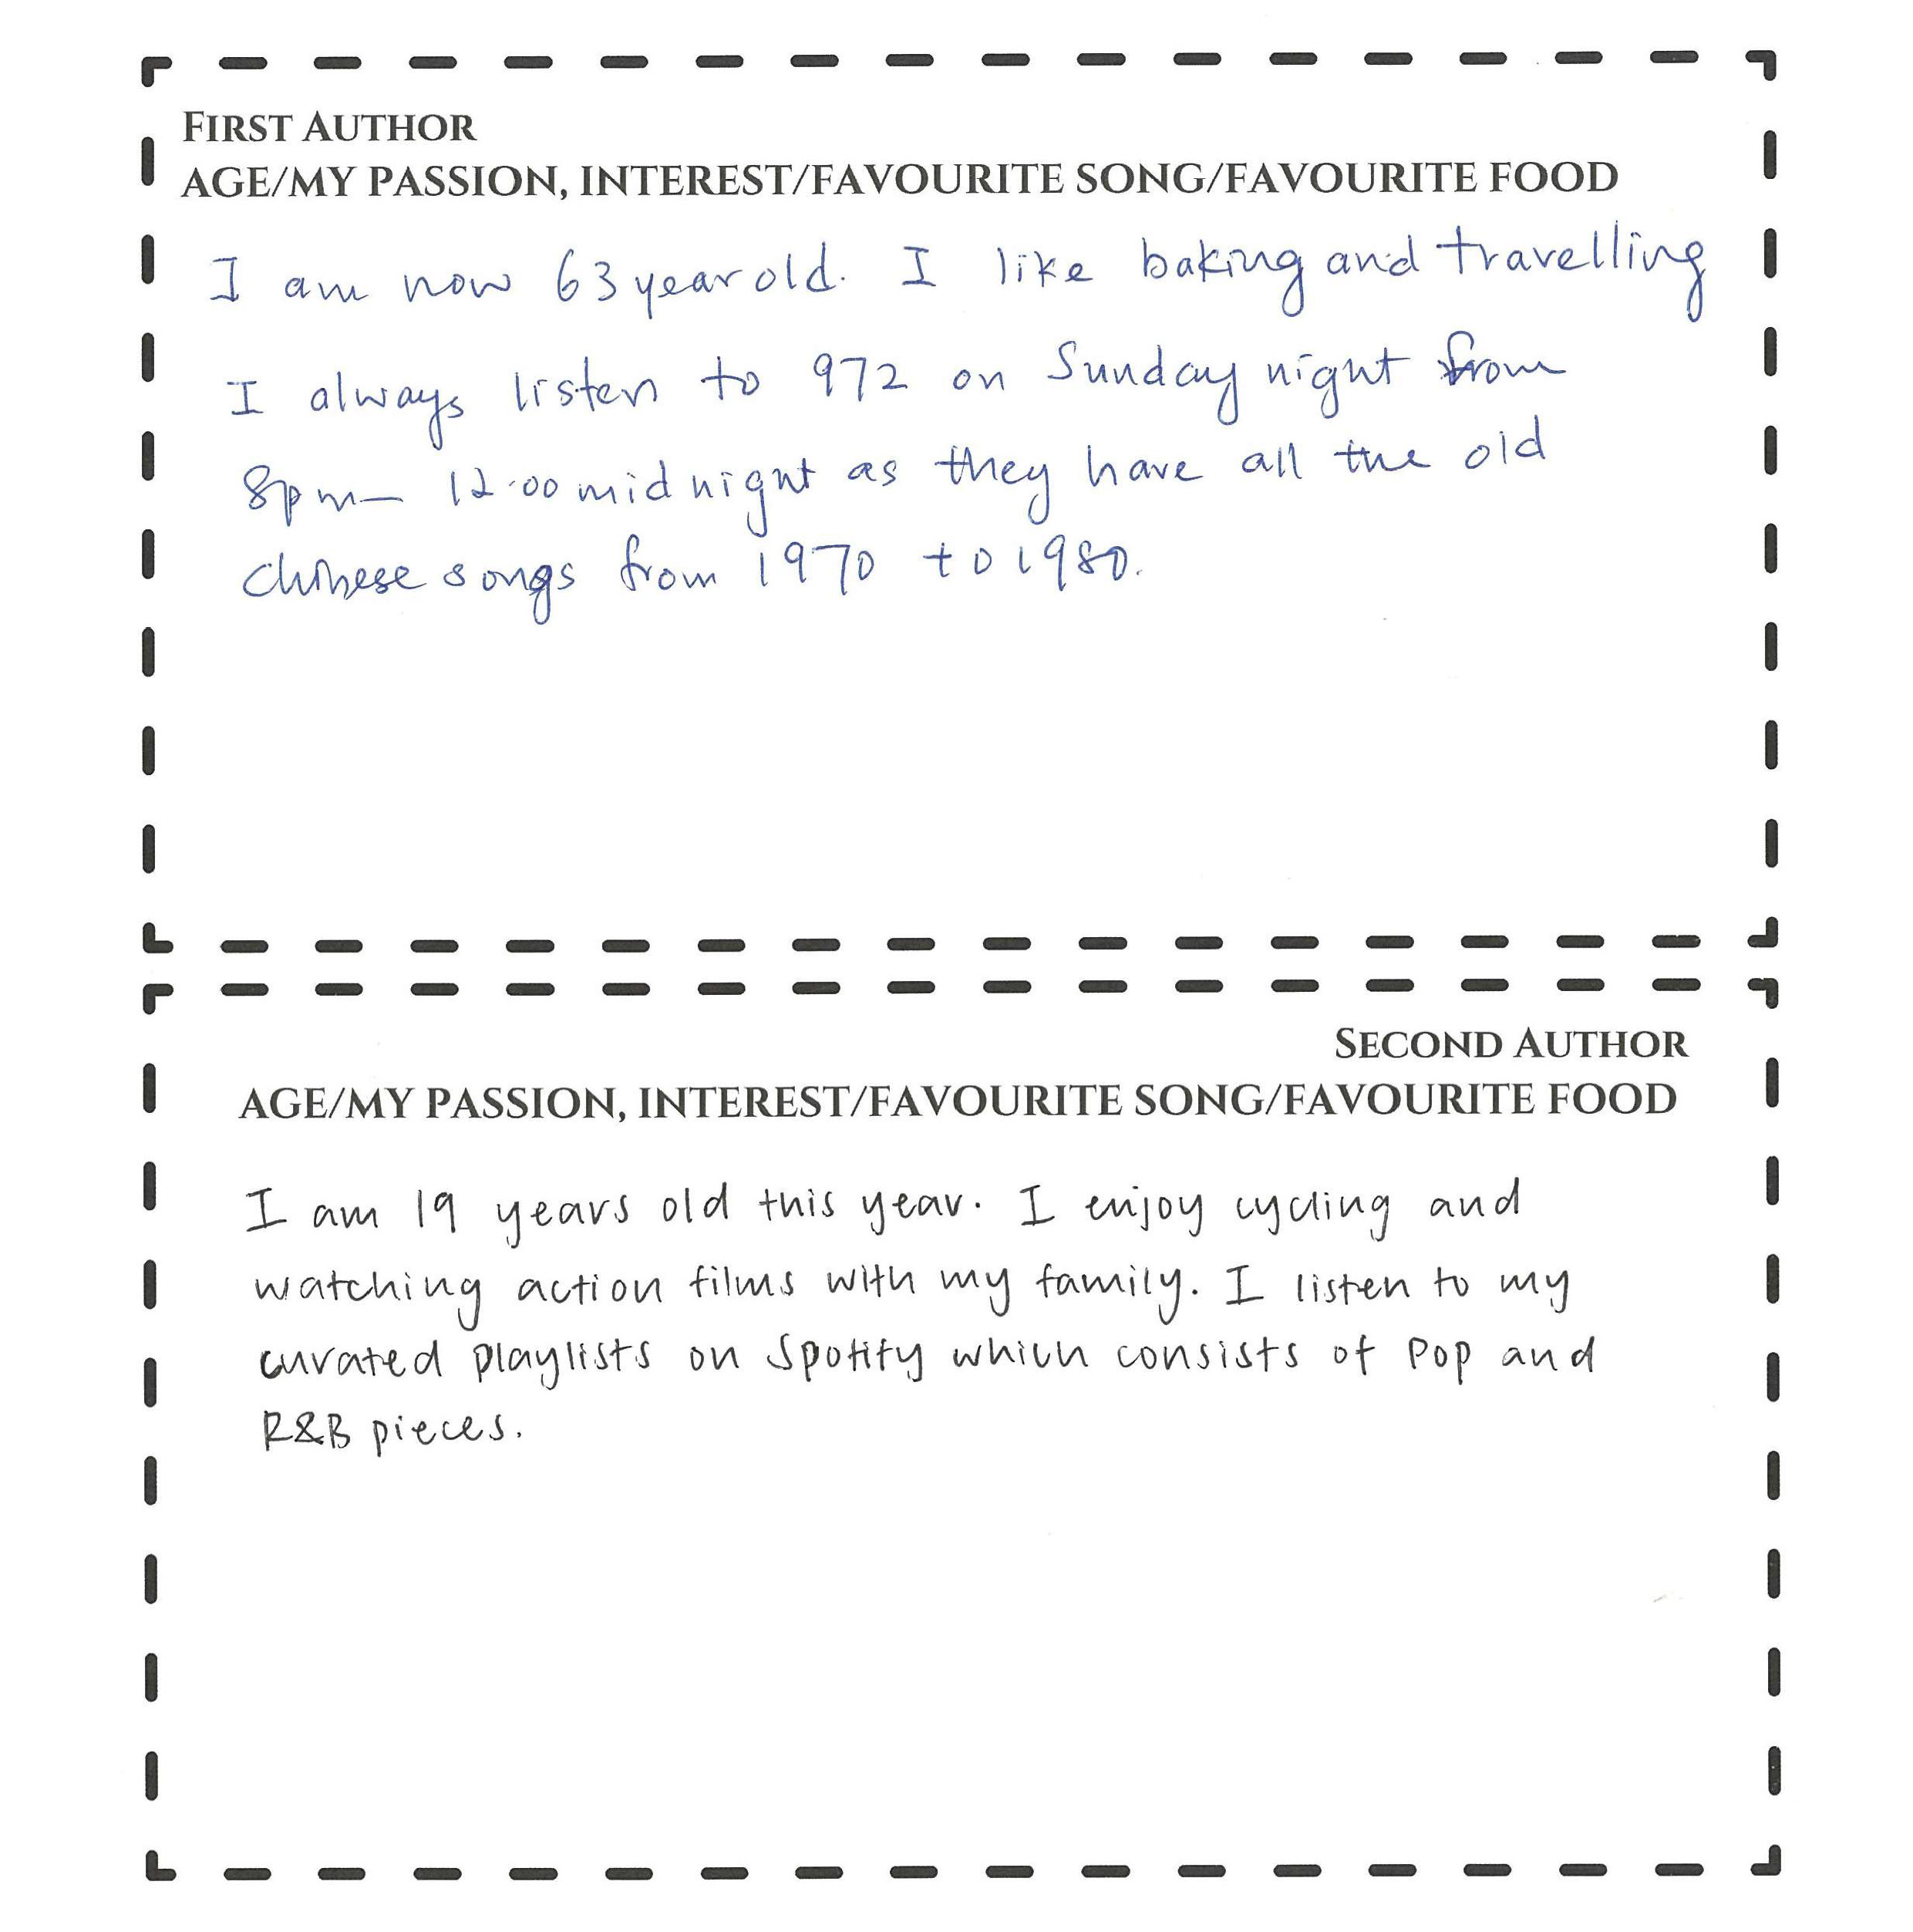 FIRST AUTHOR
AGE/MY PASSION, INTEREST/FAVOURITE SONG/FAVOURITE FOOD
I am now 63 year old. I like baking and travelling
I always listen to 972 on Sunday night from
8pm – 12.00 midnight as they have all the old
chinese songs from 1970 to 1980.
SECOND AUTHOR
AGE/MY PASSION, INTEREST/FAVOURITE SONG/FAVOURITE FOOD
I am 19 years old this year. I enjoy cycling and
watching action films with my family. I listen to my
curated playlists on Spotify which consists of Pop and
R&B pieces.